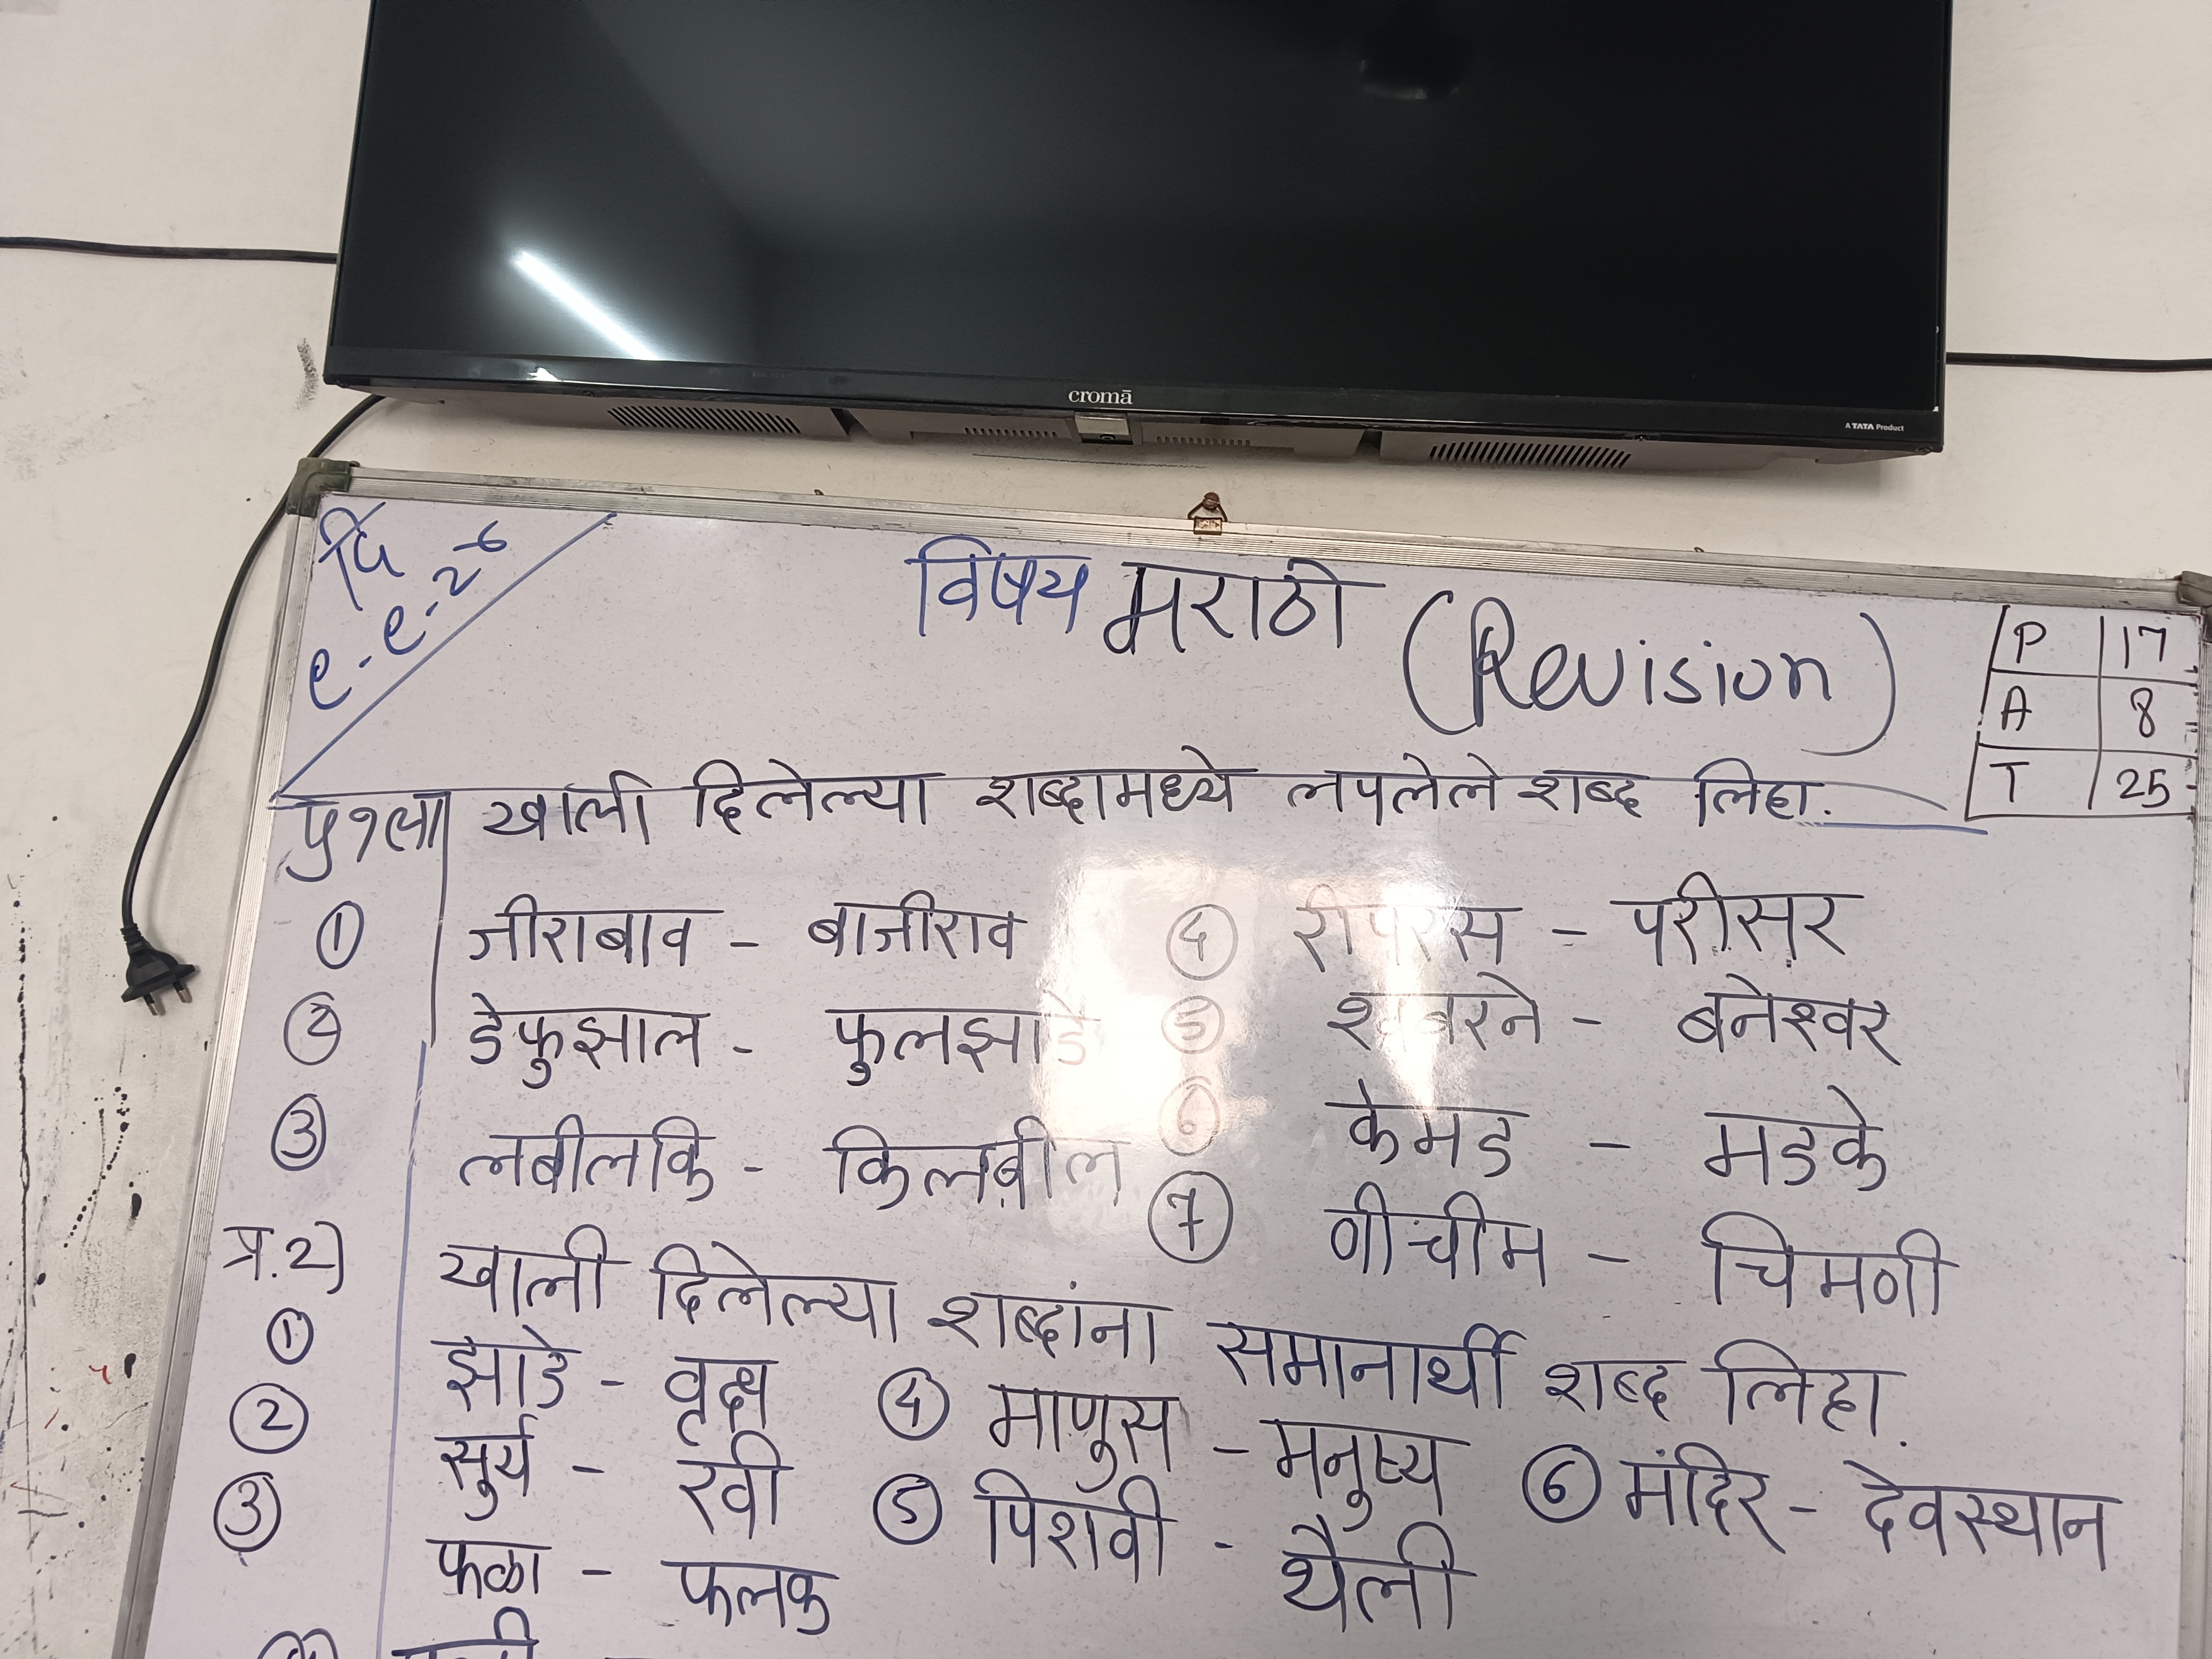 croma
A TATA Product
दि
९-९-२६
विषय मराठी (Revision)
P 17
A 8
T 25
प्र१ला खाली दिलेल्या शब्दामध्ये लपलेले शब्द लिहा.
① जीराबाव - बाजीराव ④ रीपरस - परीसर
② डेफुझाल - फुलझाडे ⑤ श्वबरने - बनेश्वर
③ लबीलकि - किलबील ⑥ केमड - मडके
⑦ णीचीम - चिमणी
प्र.2) खाली दिलेल्या शब्दांना समानार्थी शब्द लिहा.
① झाडे - वृक्ष ④ माणुस - मनुष्य ⑥ मंदिर - देवस्थान
② सुर्य - रवी ⑤ पिशवी - थैली
③ फळा - फलक